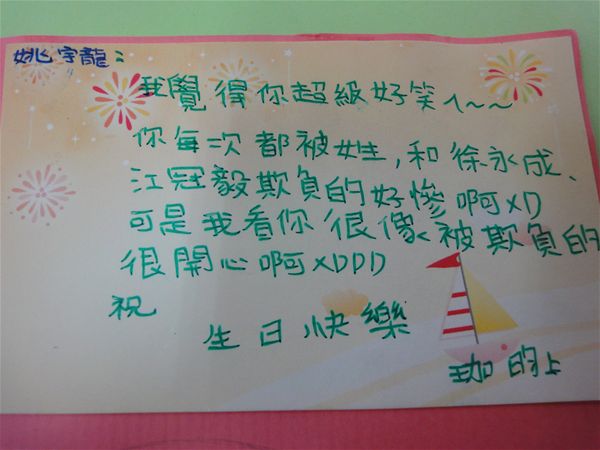 姚宇龍：
我覺得你超級好笑ㄟ~~
你每次都被女生,和徐永成、
江冠毅欺負的好慘啊XD
可是我看你很像被欺負的
很開心啊XDDD
祝
生日快樂
珈昀上